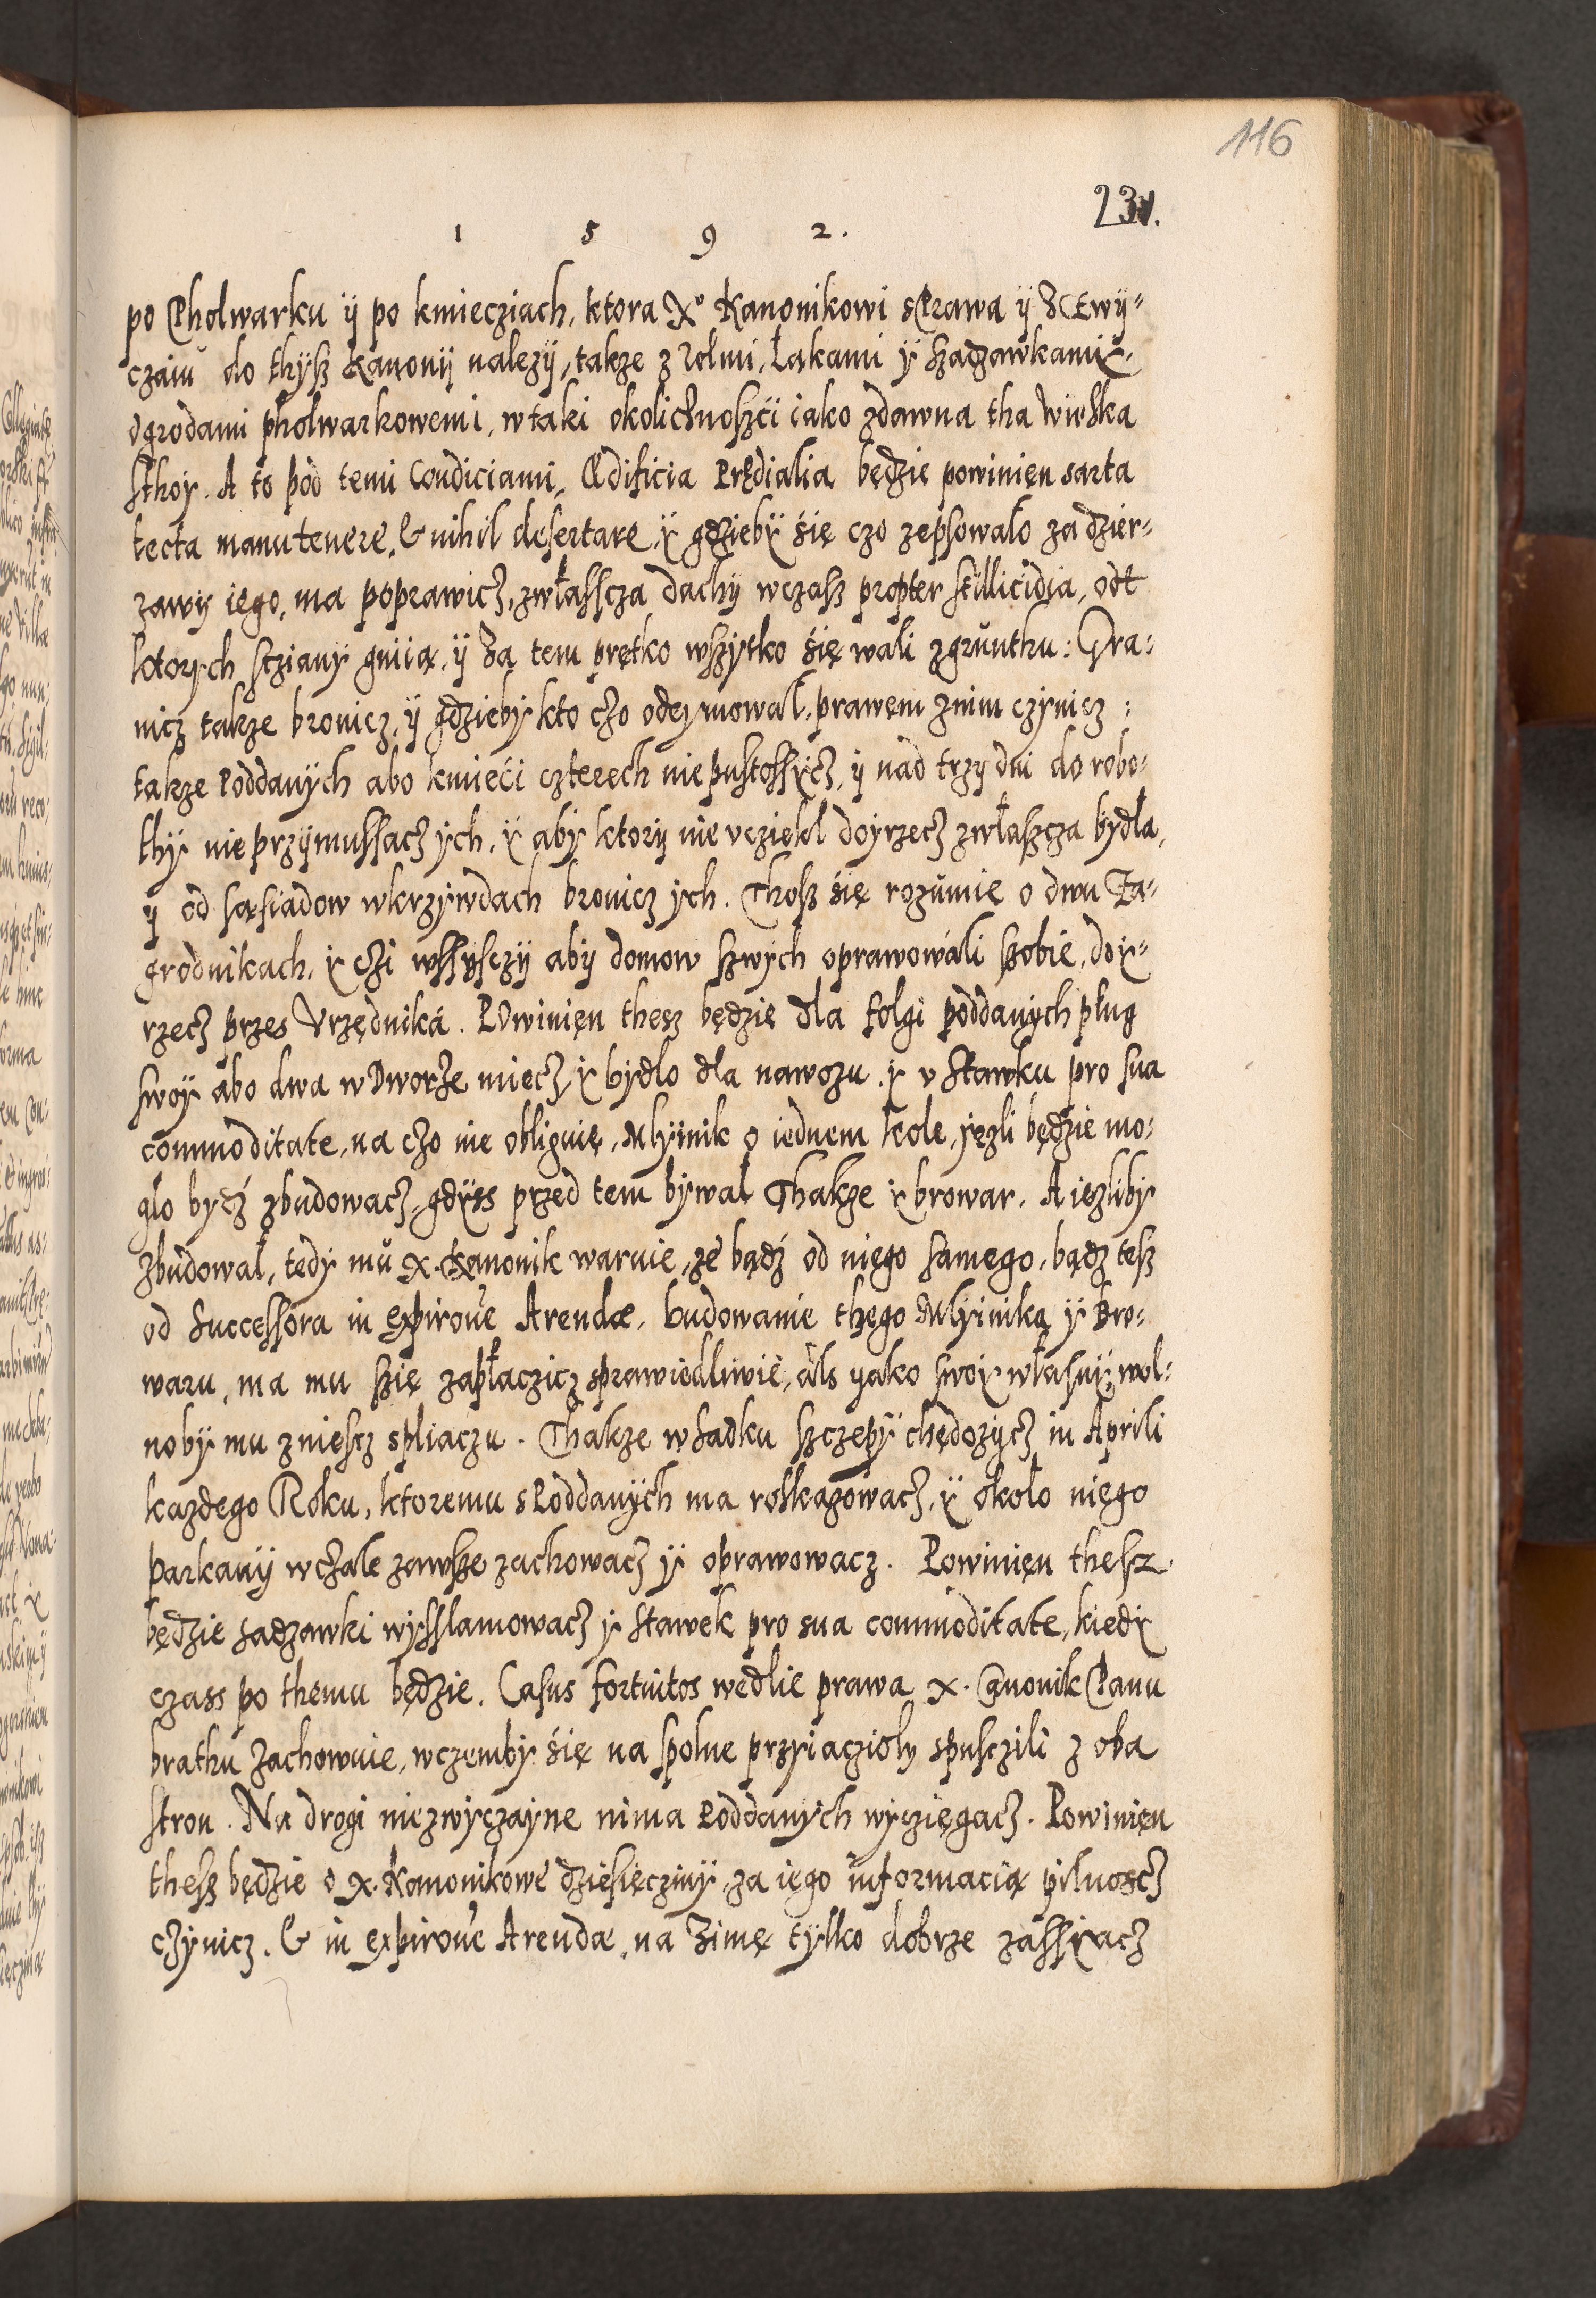 116
231.
1 5 9 2.
po Pholwarku ÿ po kmiecziach, ktora Xº Kanonikowi sPrawa ÿ Zwÿ-
czaiu do thÿsz Kanonÿ nalezÿ, takze z Rolmi, Łakami ÿ Szadzawkami
ogrodami pholwarkowemi, w taki okolicznoszći iako zdawna tha wioska
sthoy. A to pod temi Condiciami, Ædificia Prędialia będzie powinięn sarta
tecta manutenere, & nihil desertare, ÿ gdziebÿ się czo zepsowalo za dzier-
zawÿ iego, ma poprawicz, zwłasscza dachÿ wczasz propter stillicidia, odt
ktorÿch scziany gniią, ÿ za tem prętko wszÿtko się wali zgrunthu: Gra-
nicz takze bronicz, ÿ gdziebÿ kto czo odeÿmowal, prawem znim czÿnicz:
takze Poddanÿch abo kmieći czterech nie pustossÿcz, ÿ nad trzÿ dni do robo-
thÿ nie przÿmussacz ÿch, ÿ abÿ ktorÿ nie vcziekl doÿrzecz zwłaszcza bÿdła,
ÿ od sąsiadow wkrzÿwdach bronicz ÿch. Thosz się rozumie o dwu Za-
grodnikach, ÿ czi wssÿsczÿ abÿ domow szwÿch oprawowali szobie, doÿ-
rzecz przes Vrzędniká. POwinięn thesz będzie dla folgi poddanÿch pług
swoÿ abo dwa w Dworze miecz, ÿ bydlo dla nawozu, ÿ v Stawku pro sua
commoditate, na czo nie obliguię, Mlÿinik o iednem kole, ÿęzli będzie mo-
glo bÿcź zbudowacz, gdÿss przed tem bÿwal Thakze ÿ browar. A iezlibÿ
zbudowal, tedÿ mu X. Kanonik waruie, ze bądź od niego samego, bądz tesz
od Successora in expirone Arendæ, budowanie thego Mlÿinika ÿ Bro-
waru, ma mu szię zapłaczicz sprawiedliwie, als yako swoÿ własnÿ, wol-
nobÿ mu zniescz spliaczu. Thakze w Sadku szczepÿ chędozÿcz in Aprili
kazdego Roku, ktoremu sPoddanÿch ma roskazowacz, ÿ około niego
parkanÿ wczale zawsze zachowacz ÿ oprawowacz. Powinięn thesz
będzie sadzawki wÿsslamowacz ÿ Stawek pro sua commoditate, kiedÿ
czass po themu będzie. Casus fortuitos wedlie prawa X. Canonik Panu
brathu zachowuie, wczembÿ się na spolne przÿiacziolÿ spusczili z oba
stron. Na drogi niezwÿczaÿne nima Poddanÿch wÿcziągacz. Powinien
thesz będzie o X. Kanonikowe dziesięczinÿ, za iego informacią pilnoscz
czÿnicz. & in expirone Arendæ, na Zimę tÿlko dobrze zassiacz